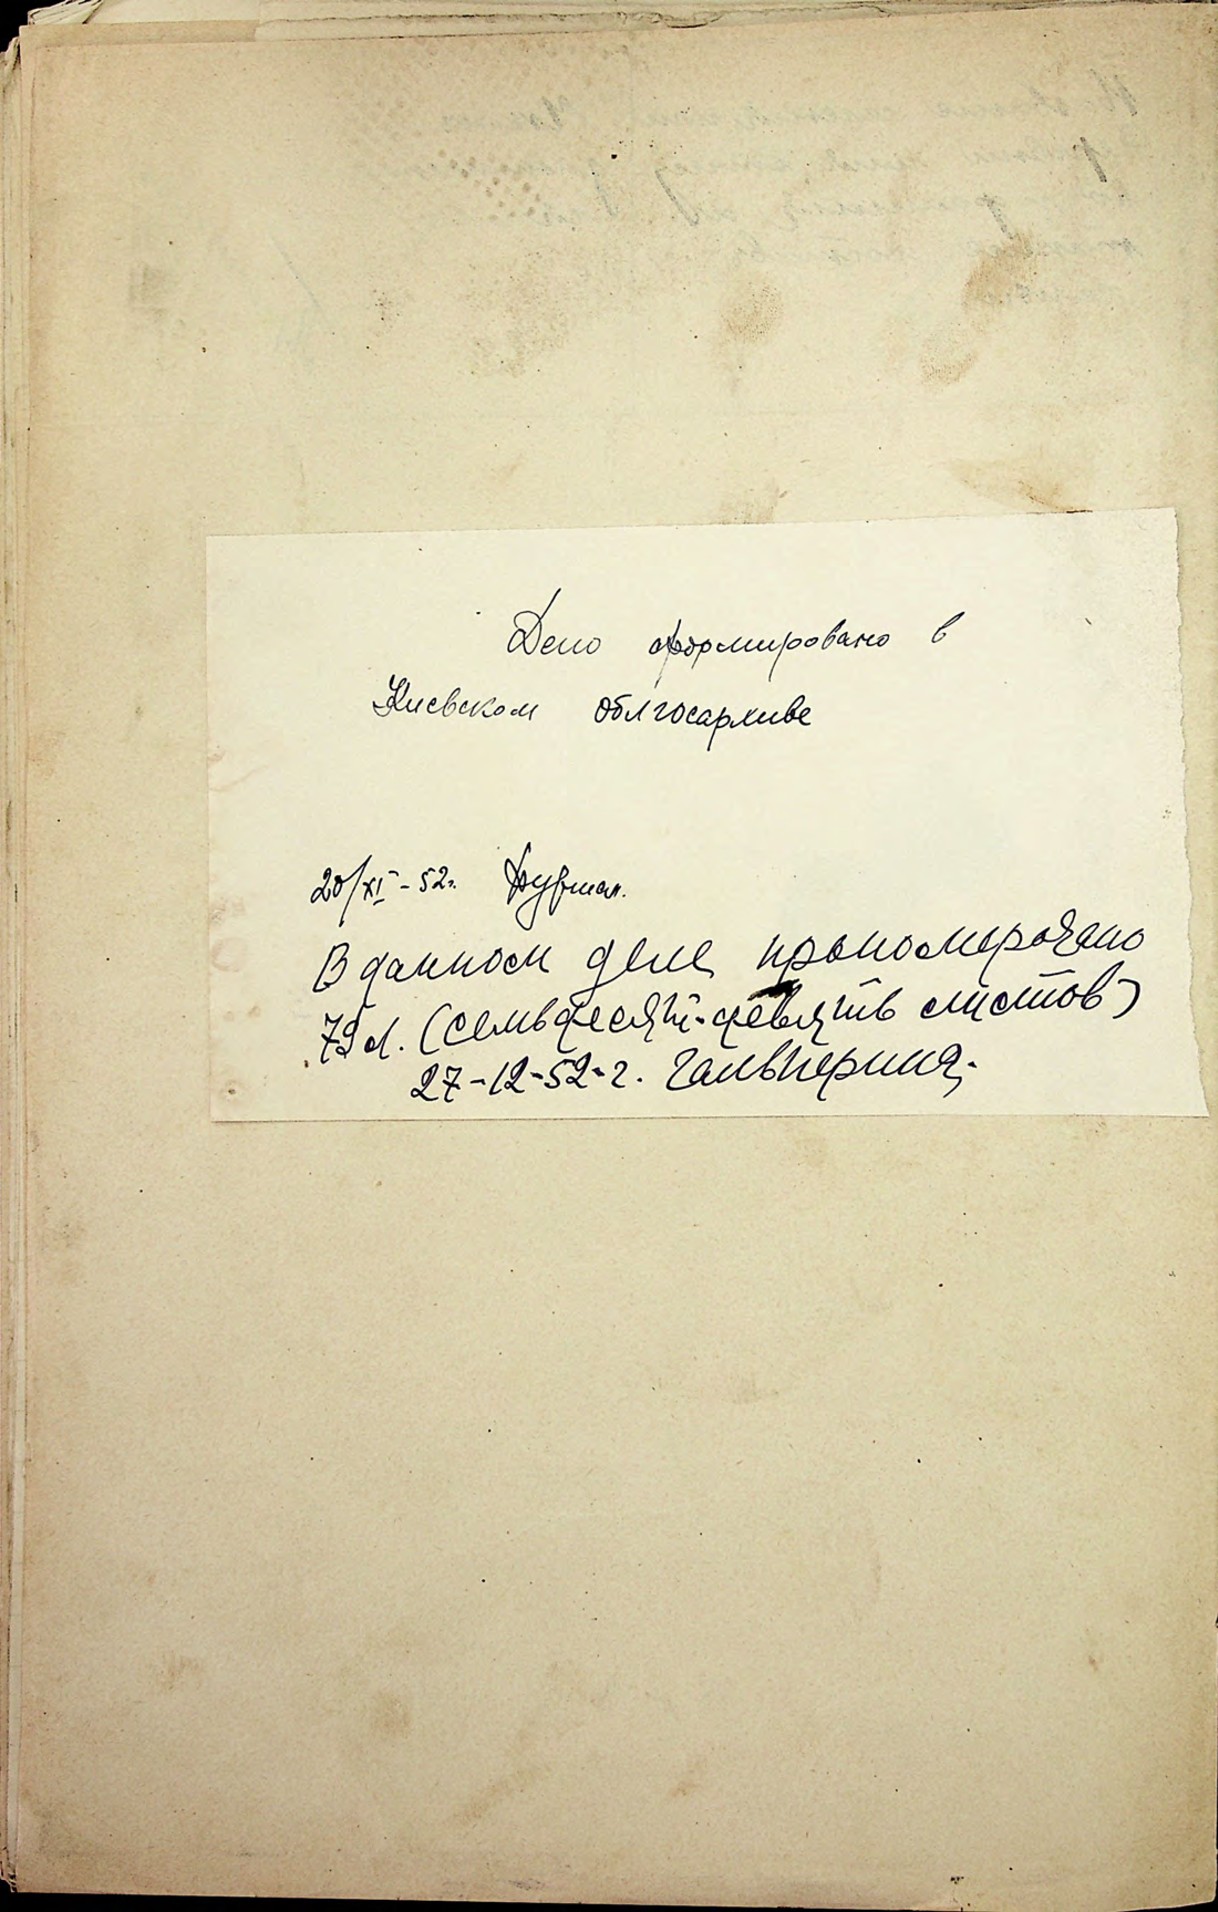 Дело оформировано в
Киевском облгосархиве
20/XI - 52г.
В данном деле прономеровано
79 л. (семьдесят-девять листов)
27-12-52-г. Гальперина.